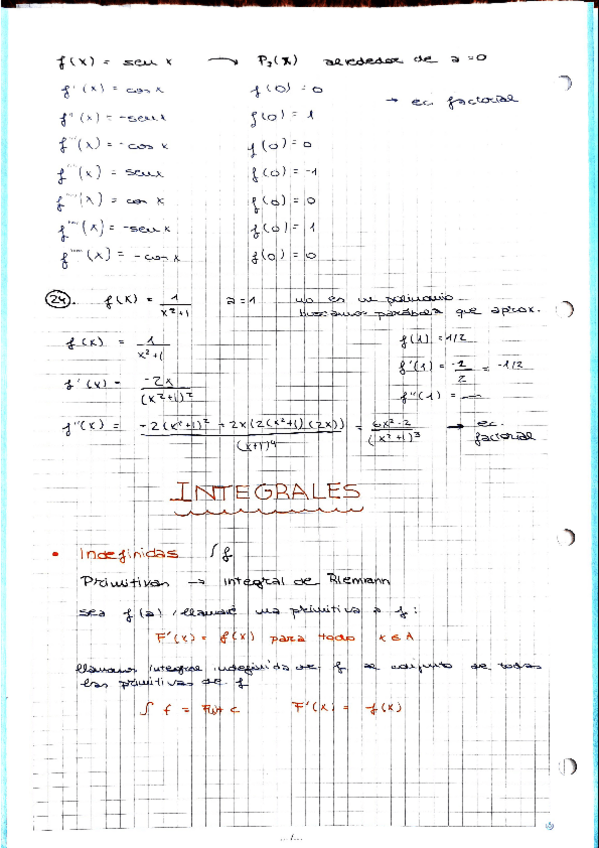 f(x) = sen x → P₇(x) alrededor de a=0
f'(x) = cos x f(0) = 0
→ ec. factorial
f''(x) = -sen x f(0) = 1
f'''(x) = -cos x f(0) = 0
f''''(x) = sen x f(0) = -1
f'''''(x) = cos x f(0) = 0
f''''''(x) = -sen x f(0) = 1
f'''''''(x) = -cos x f(0) = 0
24. f(x) = 1/(x²+1) a=1 no es un polinomio
buscamos parábola que aprox.
f(x) = 1/(x²+1) f(1) = 1/2
f'(x) = -2x/(x²+1)² f'(1) = -1/2 = -1/2
f''(1) = —
f''(x) = (-2(x²+1)² + 2x(2(x²+1)(2x)))/(x+1)⁴ = (6x²-2)/(x²+1)³ → ec. factorial
INTEGRALES
• Indefinidas ∫f
Primitivas → integral de Riemann
sea f(a), llamaré una primitiva a f:
F'(x) = f(x) para todo x ∈ A
llamamos integral indefinida de f al conjunto de todas
las primitivas de f
∫ f = F(x)+ c F'(x) = f(x)